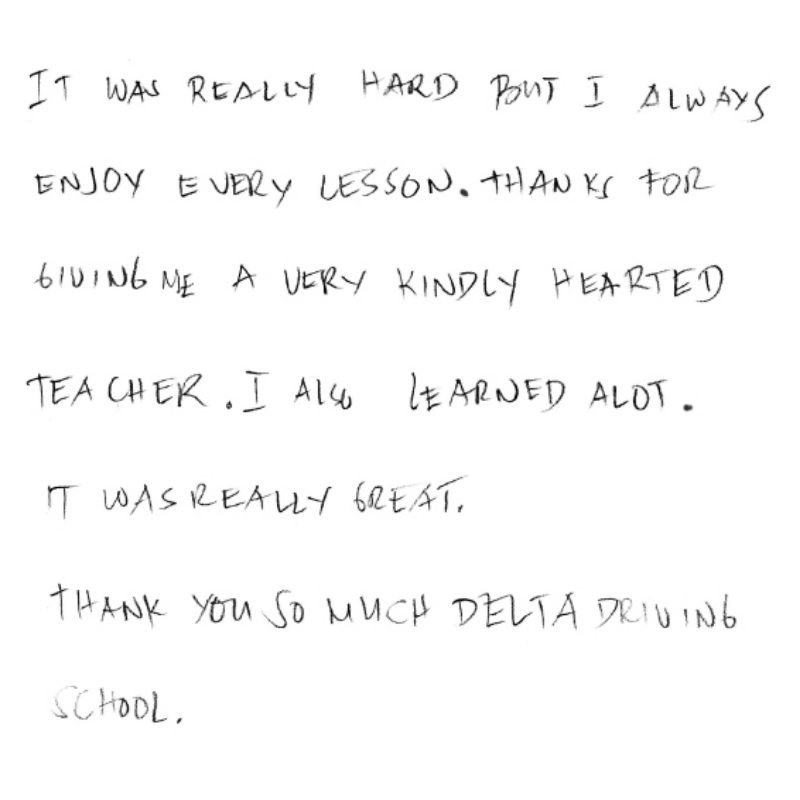 IT WAS REALLY HARD BUT I ALWAYS
ENJOY EVERY LESSON. THANKS FOR
GIVING ME A VERY KINDLY HEARTED
TEACHER. I ALSO LEARNED ALOT.
IT WAS REALLY GREAT.
THANK YOU SO MUCH DELTA DRIVING
SCHOOL.